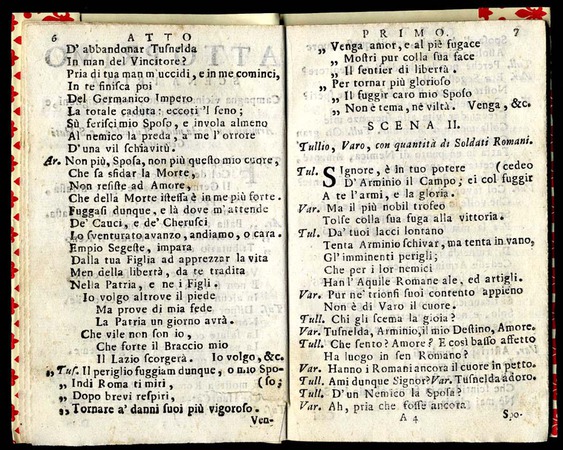 6 ATTO
D' abbandonar Tusnelda
In man del Vincitore?
Pria di tua man m'uccidi, e in me cominci,
In te finisca poi
Del Germanico Impero
La totale caduta: eccoti 'l seno;
Sù, ferisci mio Sposo, e invola almeno
Al nemico la preda, a me l'orrore
D'una vil schiavitù.
Ar. Non più, Sposa, non più questo mio cuore,
Che sa sfidar la Morte,
Non resiste ad Amore,
Che della Morte istessa è in me più forte.
Fuggasi dunque, e là dove m'attende
De' Cauci, e de' Cherusci
Lo sventurato avanzo, andiamo, o cara.
Empio Segeste, impara
Dalla tua Figlia ad apprezzar la vita
Men della libertà, da te tradita
Nella Patria, e ne i Figli.
Io volgo altrove il piede
Ma prove di mia fede
La Patria un giorno avrà.
Che vile non son io,
Che forte il Braccio mio
Il Lazio scorgerà. Io volgo, &c.
„ Tus. Il periglio fuggiam dunque, o mio Spo-
„ Indi Roma ti miri, (so;
„ Dopo brevi respiri,
„ Tornare a' danni suoi più vigoroso.
Ven-
PRIMO. 7
„ Venga amor, e al piè fugace
„ Mostri pur colla sua face
„ Il sentier di libertà.
„ Per tornar più glorioso
„ Il fuggir caro mio Sposo
„ Non è tema, nè viltà. Venga, &c.
SCENA II.
Tullio, Varo, con quantità di Soldati Romani.
Tul. SIgnore, è in tuo potere (cedeo
D'Arminio il Campo; ei col fuggir
A te l'armi, e la gloria.
Var. Ma il più nobil trofeo
Tolse colla sua fuga alla vittoria.
Tul. Da' tuoi lacci lontano
Tenta Arminio schivar, ma tenta in vano,
Gl' imminenti perigli;
Che per i lor nemici
Han l'Aquile Romane ale, ed artigli.
Var. Pur ne' trionfi suoi contento appieno
Non è di Varo il cuore.
Tull. Chi gli scema la gioia?
Var. Tusnelda, Arminio, il mio Destino, Amore.
Tull. Che sento? Amore? E così basso affetto
Ha luogo in sen Romano?
Var. Hanno i Romani ancora il cuore in petto.
Tull. Ami dunque Signor? Var. Tusnelda adoro.
Tull. D'un Nemico la Sposa?
Var. Ah, pria che fosse ancora
A 4 Spo-